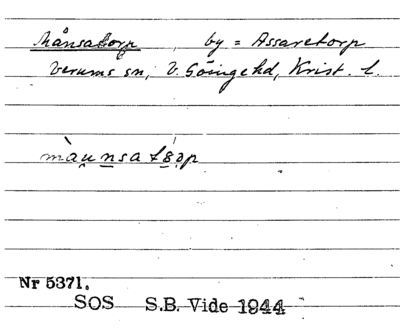 Månsatorp, by = Assaretorp
Verums sn, V. Göingehd, Krist. l.
Nr 5371.
SOS S.B. Vide 1944